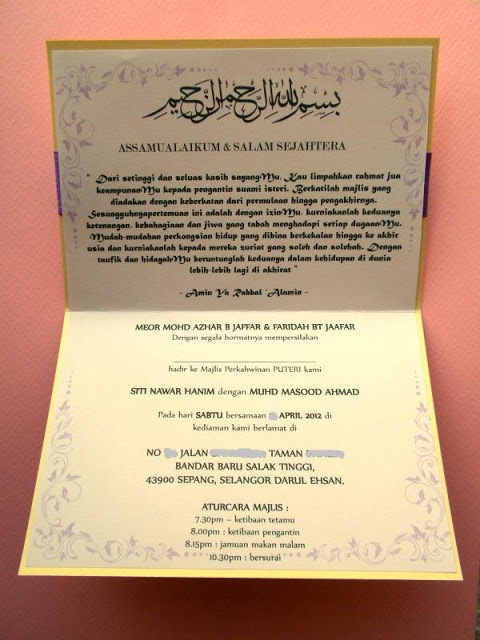 بسم الله الرحمن الرحيم
ASSAMUALAIKUM & SALAM SEJAHTERA
" Dari setinggi dan seluas kasih sayangMu, Kau limpahkan rahmat jua
keampunanMu kepada pengantin suami isteri. Berkatilah majlis yang
diadakan dengan keberkatan dari permulaan hingga pengakhirnya.
Sesungguhnyapertemuan ini adalah dengan izinMu, kurniakanlah keduanya
ketenangan, kebahaginan dan jiwa yang tabah menghadapi setiap dugaanMu.
Mudah-mudahan perkongsian hidup yang dibina berkekalan hingga ke akhir
usia dan kurniakanlah kepada mereka zuriat yang soleh dan solehah. Dengan
taufik dan hidayahMu beruntunglah keduanya dalam kehidupan di dunia
lebih-lebih lagi di akhirat "
- Amin Ya Rabbal 'Alamin -
MEOR MOHD AZHAR B JAFFAR & FARIDAH BT JAAFAR
Dengan segala hormatnya mempersilakan
hadir ke Majlis Perkahwinan PUTERI kami
SITI NAWAR HANIM dengan MUHD MASOOD AHMAD
Pada hari SABTU bersamaan APRIL 2012 di
kediaman kami berlamat di
NO JALAN TAMAN
BANDAR BARU SALAK TINGGI,
43900 SEPANG, SELANGOR DARUL EHSAN.
ATURCARA MAJLIS :
7.30pm – ketibaan tetamu
8.00pm : ketibaan pengantin
8.15pm : jamuan makan malam
10.30pm : bersurai